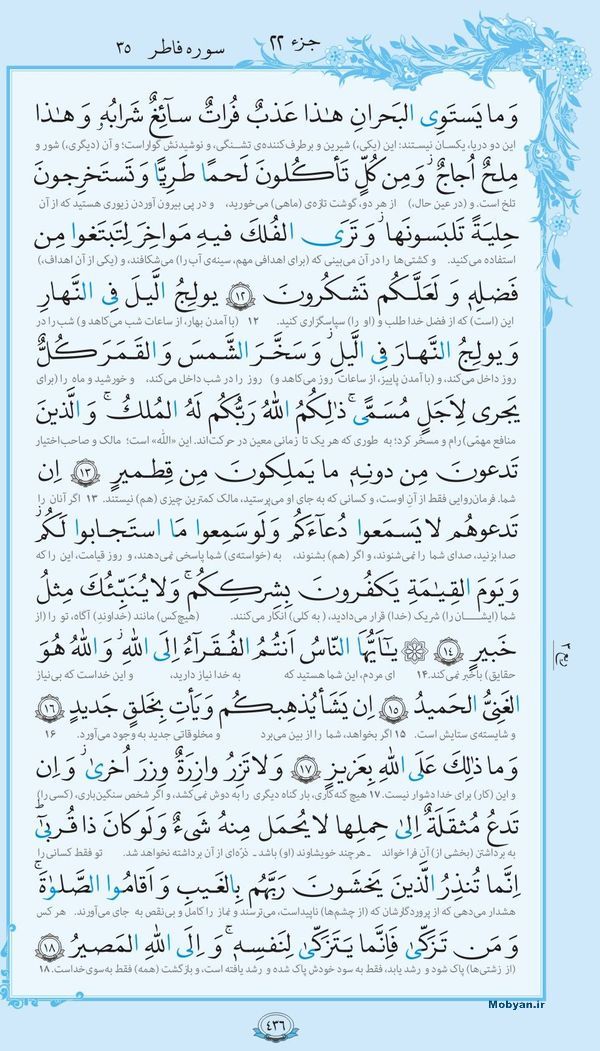 جزء ۲۲ سوره فاطر ۳۵
وَ ما يَستَوِى البَحرانِ هٰذا عَذبٌ فُراتٌ سآئِغٌ شَرابُهُ و وَ هٰذا
این دو دریا، یکسان نیستند: این (یکی،) شیرین و برطرف‌کننده‌ی تشنگی، و نوشیدنش گواراست؛ و آن (دیگری،) شور و
مِلحٌ اُجاجٌ ۖ وَ مِن كُلٍّ تَأكُلونَ لَحمًا طَرِيًّا وَ تَستَخرِجونَ
تلخ است. و (در عین حال،) از هر دو، گوشت تازه‌ی (ماهی) می‌خورید، و در پی بیرون آوردن زیوری هستید که از آن
حِليَةً تَلبَسونَها ۖ وَ تَرَى الفُلكَ فيهِ مَواخِرَ لِتَبتَغوا مِن
استفاده می‌کنید. و کشتی‌ها را در آن می‌بینی که (برای اهدافی مهم، سینه‌ی آب را) می‌شکافند، و (یکی از آن اهداف،)
فَضلِه۪ وَ لَعَلَّكُم تَشكُرونَ ﴿۱۲﴾ يولِجُ الَّيلَ فِى النَّهارِ
این (است) که از فضل خدا طلب و (او را) سپاسگزاری کنید. ۱۲ (با آمدن بهار، از ساعات شب می‌کاهد و) شب را در
وَ يولِجُ النَّهارَ فِى الَّيلِ ۖ وَ سَخَّرَ الشَّمسَ وَ القَمَرَ كُلٌّ
روز داخل می‌کند، و (با آمدن پاییز، از ساعات روز می‌کاهد و) روز را در شب داخل می‌کند، و خورشید و ماه را (برای
يَجرى لِاَجَلٍ مُسَمًّى ۚ ذٰلِكُمُ اللهُ رَبُّكُم لَهُ المُلكُ ۚ وَ الَّذينَ
منافع مهمّی) رام و مسخّر کرد؛ به طوری که هر یک تا زمانی معین در حرکت‌اند. این «الله» است؛ مالک و صاحب‌اختیار
تَدعونَ مِن دونِه۪ ما يَملِكونَ مِن قِطميرٍ ﴿۱۳﴾ اِن
شما. فرمان‌روایی فقط از آنِ اوست، و کسانی که به جای او می‌پرستید، مالک کمترین چیزی (هم) نیستند. ۱۳ اگر آنان را
تَدعوهُم لا يَسمَعوا دُعآءَكُم وَ لَو سَمِعوا مَا استَجابوا لَكُم ۖ
صدا بزنید، صدای شما را نمی‌شنوند، و اگر (هم) بشنوند، به (خواسته‌ی) شما پاسخی نمی‌دهند، و روز قیامت، این را که
وَ يَومَ القِيٰمَةِ يَكفُرونَ بِشِركِكُم ۚ وَ لا يُنَبِّئُكَ مِثلُ
شما (ایشان را) شریک (خدا) قرار می‌دادید، (به کلی) انکار می‌کنند. (هیچ‌کس) مانند (خداوندِ) آگاه، تو را (از
خَبيرٍ ﴿۱۴﴾ يٰٓاَيُّهَا النّاسُ اَنتُمُ الفُقَرآءُ اِلَى اللهِ ۖ وَ اللهُ هُوَ
حقایق) باخبر نمی‌کند. ۱۴ ای مردم، این شما هستید که به خدا نیاز دارید، و این خداست که بی‌نیاز
الغَنِىُّ الحَميدُ ﴿۱۵﴾ اِن يَشَأ يُذهِبكُم وَ يَأتِ بِخَلقٍ جَديدٍ ﴿۱۶﴾
و شایسته‌ی ستایش است. ۱۵ اگر بخواهد، شما را از بین می‌برد و مخلوقاتی جدید به وجود می‌آورد. ۱۶
وَ ما ذٰلِكَ عَلَى اللهِ بِعَزيزٍ ﴿۱۷﴾ وَ لا تَزِرُ وازِرَةٌ وِزرَ اُخرىٰ ۚ وَ اِن
و این (کار) برای خدا دشوار نیست. ۱۷ هیچ گنه‌کاری، بار گناه دیگری را به دوش نمی‌کشد، و اگر شخص سنگین‌باری، (کسی را)
تَدعُ مُثقَلَةٌ اِلىٰ حِملِها لا يُحمَل مِنهُ شَىءٌ وَ لَو كانَ ذا قُربىٰٓ ۗ
به برداشتن (بخشی از) آن فرا خواند ـ هرچند خویشاوند (او) باشد ـ ذرّه‌ای از آن برداشته نخواهد شد. تو فقط کسانی را
اِنَّما تُنذِرُ الَّذينَ يَخشَونَ رَبَّهُم بِالغَيبِ وَ اَقامُوا الصَّلوٰةَ ۚ
هشدار می‌دهی که از پروردگارشان که (از چشم‌ها) ناپیداست، می‌ترسند و نماز را کامل و بی‌نقص به جای می‌آورند. هر کس
وَ مَن تَزَكّىٰ فَاِنَّما يَتَزَكّىٰ لِنَفسِه۪ ۚ وَ اِلَى اللهِ المَصيرُ ﴿۱۸﴾
(از زشتی‌ها) پاک شود و رشد یابد، فقط به سود خودش پاک شده و رشد یافته است، و بازگشت (همه) فقط به‌سوی خداست. ۱۸
۴۳۶
Mobyan.ir